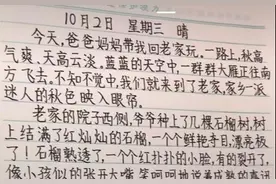 10月2日 星期三 晴
今天,爸爸妈妈带我回老家玩。一路上,秋高
气爽、天高云淡。蓝蓝的天空中,一群群大雁正往南
方飞去。不知不觉中,我们就来到了老家,家乡一派
迷人的秋色映入眼帘。
老家的院子西侧,爷爷种了几棵石榴树,树
上结满了红灿灿的石榴,一个个鲜艳夺目,漂亮极
了!石榴熟透了,一个个红扑扑的小脸,有的裂开了,
像小孩似的张开大嘴,笑呵呵地说着成熟的喜讯